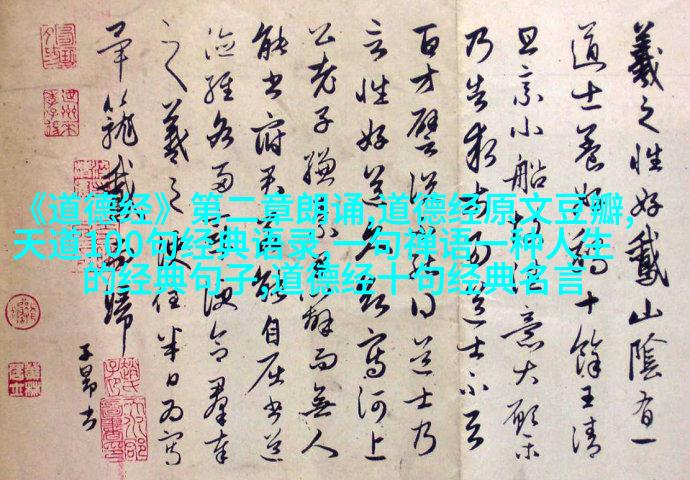 《道德经》第二章朗诵,道德经原文豆瓣,
天道100句经典语录 一句禅语一种人生
的经典句子,道德经十句经典名言
羲之性好鵞山陰有一
道士養好鵞十餘王清
旦乘小船故往意大願樂
乃告求市易道士不與
百方譬說不能得道士乃
言性好道久欲寫河上
公老子縑素早辦而無人
能書府君若能自屈書道
德經各兩章便合羣奉
之羲之便住半日為寫
畢籠鵞而歸
子昂書